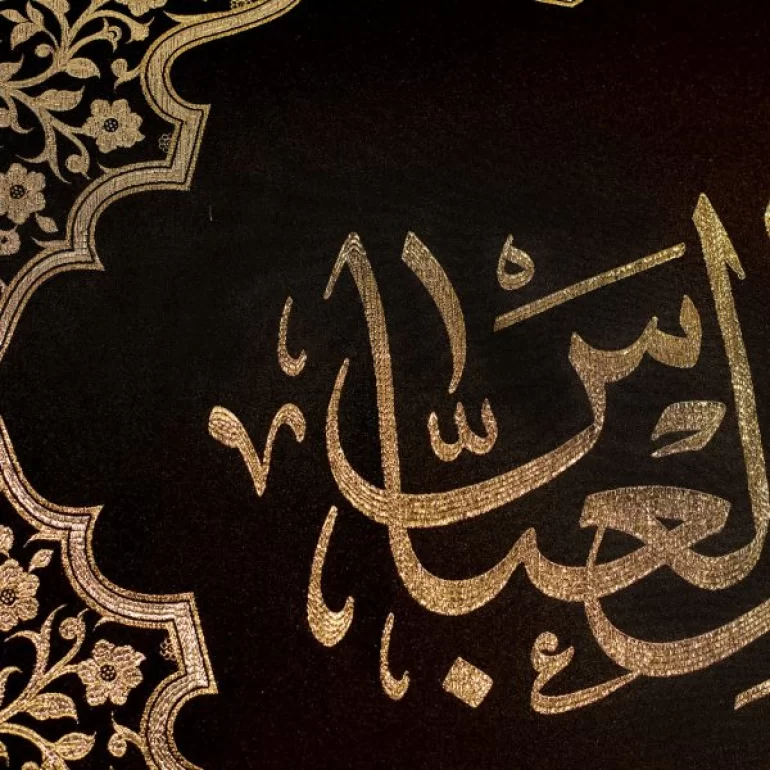 العباس